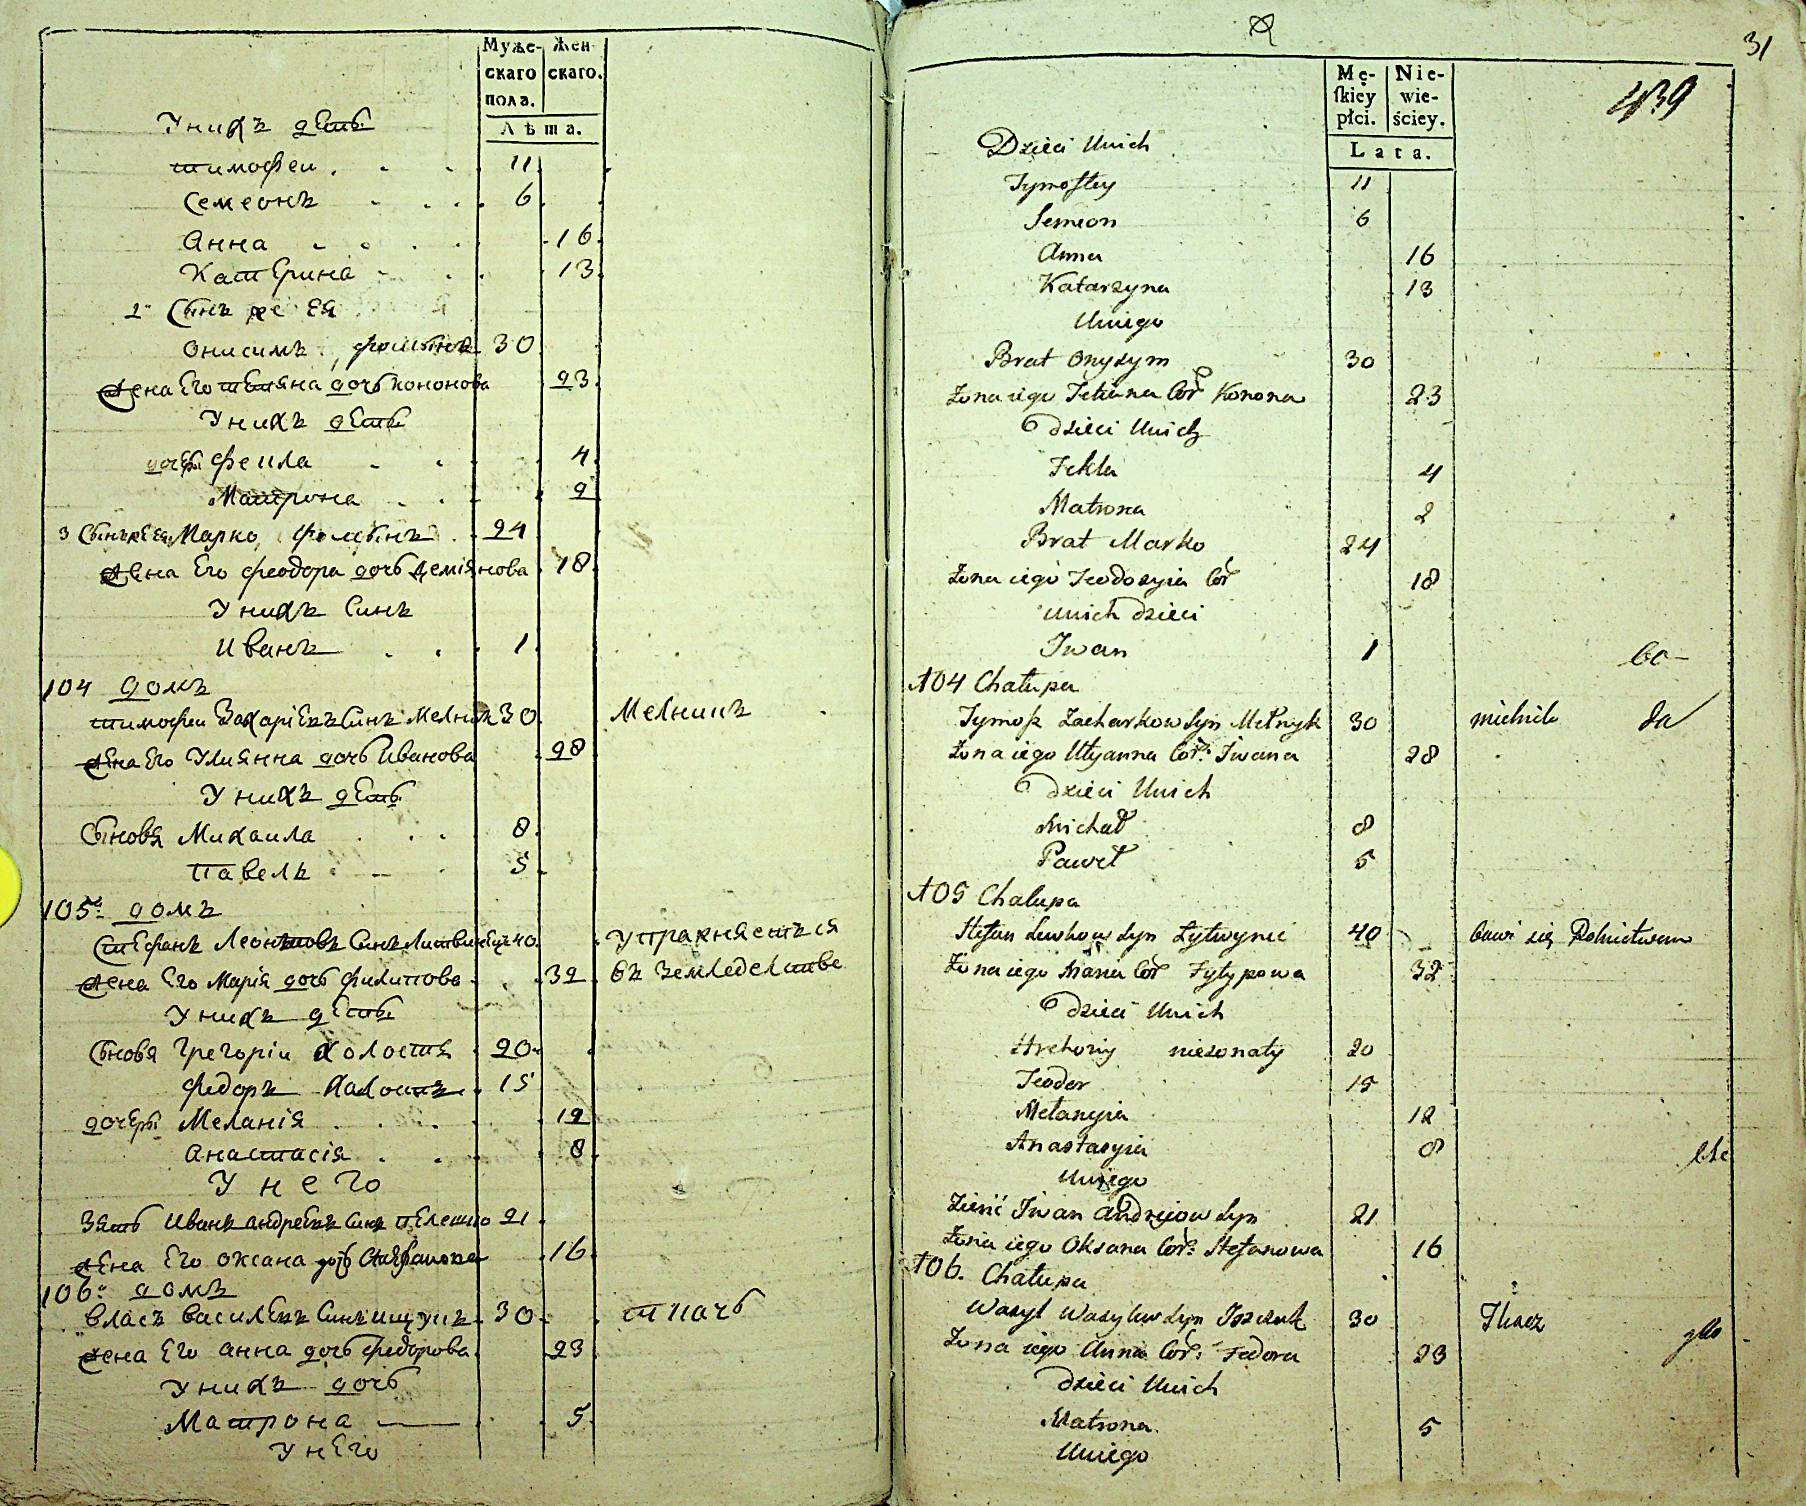 Муже-
скаго
пола.
Жен
скаго.
Лѣта.
У нихъ дѣти
тимофеи 11
Семеонъ 6
Анна 16
Катерина 13
2й Сынъ же ея
онисимъ 30
жена Его тетяна дочь кононова 23
У нихъ дети
дочери фекла 4
Матрона 2
3 Сынъ Марко 24
жена Его феодора дочь демиянова 18
У нихъ Синъ
иванъ 1
104 домъ
тимофеи Захарієвъ Синъ Мелник 30 Мелникъ
жена Его Улиянна дочь Иванова 28
У нихъ дети
Сыновя Михаила 8
Павелъ 5
105й домъ
Стефанъ Леонтовъ Синъ Литвинецъ 40 упражняется
жена Его Марія дочь филипова 32 въ земледелстве
У нихъ дети
Сыновя Грегоріи холостъ 20
федоръ холостъ 15
дочери Меланія 12
анастасія 8
У него
Зять иванъ андреевъ Синъ 21
жена Его оксана дочь Стефанова 16
106й домъ
власъ василевъ Синъ ищукъ 30 ткачъ
жена Его анна дочь федорова 23
У нихъ дочь
Матрона 5
У него
31
439
Mę-
ſkiey
płci.
Nie-
wie-
ściey.
Lata.
Dzieci Unich
Tymoftey 11
Semion 6
Anna 16
Katarzyna 13
Uniego
Brat Onysym 30
Zona iego Tetiana Cor Konona 23
dzieci Unich
Fekla 4
Matrona 2
Brat Marko 24
Zona iego Teodozyia Cor 18
Unich dzieci
Iwan 1
104 Chałupa
Tymofz Zacharkow Syn Melnyk 30 mielnik
Zona iego Ulyanna Cor: Iwana 28
dzieci Unich
Michał 8
Paweł 5
105 Chałupa
Stefan Lewkow Syn Lytwyniec 40 bawi się Rolnictwem
Zona iego Maria Cor Fylypowa 32
dzieci Unich
Hrehoriy nieżonaty 20
Teodor 15
Melanyia 12
Anastazyia 8
Uniego
Zienć Iwan Andrejow Syn 21
Zona iego Oksana Cor: Stefanowa 16
106. Chałupa
Wasyl Wasylow Syn Iszczuk 30 Tkacz
Zona iego Anna Cor: Fedora 23
dzieci Unich
Matrona 5
Uniego